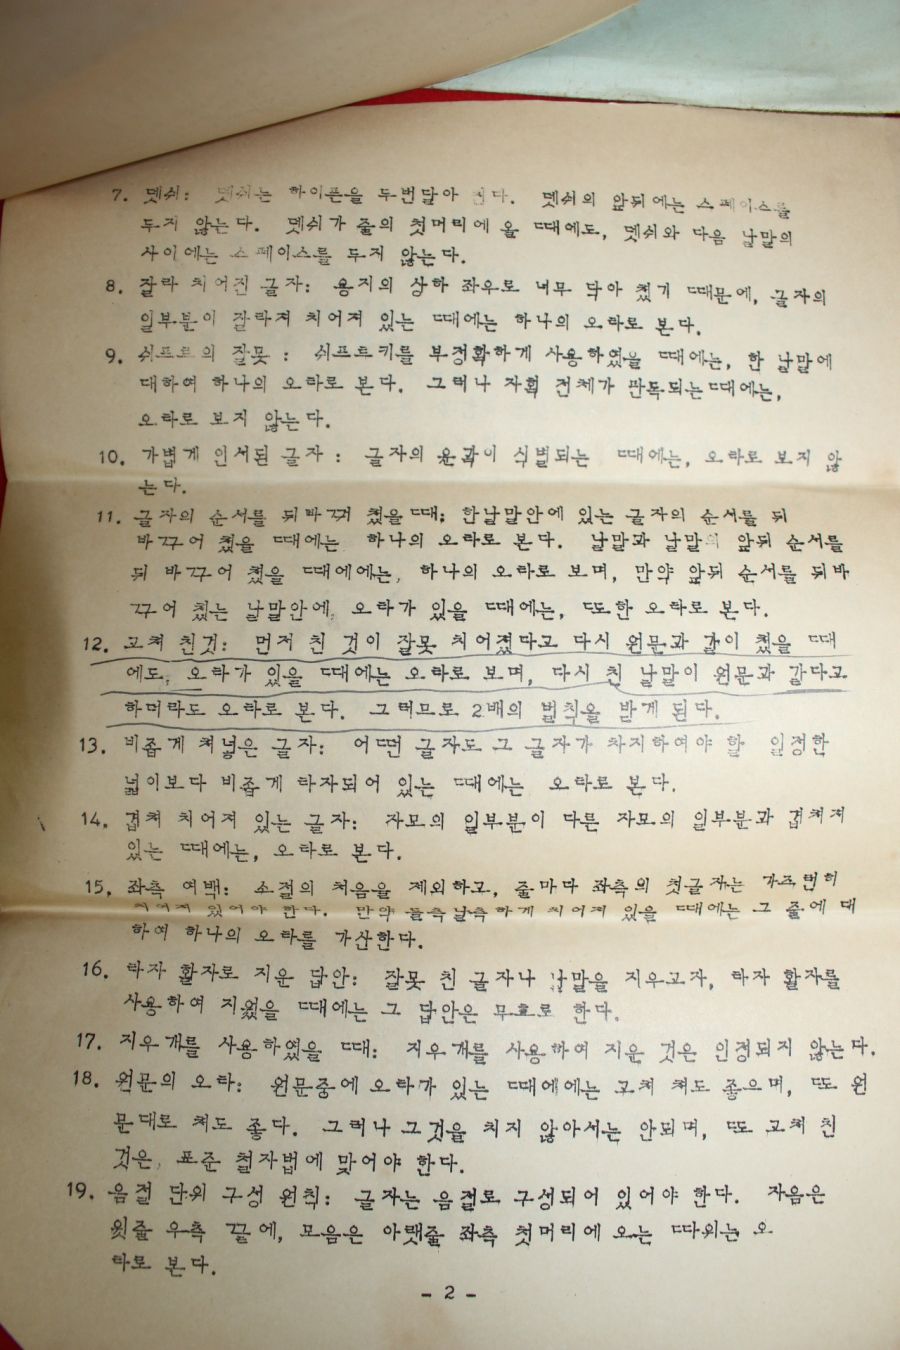 7. 뎃쉬: 뎃쉬는 하이픈을 두번달아 친다. 뎃쉬의 앞뒤에는 스페이스를
두지 않는다. 뎃쉬가 줄의 첫머리에 올 때에도, 뎃쉬와 다음 낱말의
사이에는 스페이스를 두지 않는다.
8. 잘라 치어진 글자: 용지의 상하 좌우로 너무 닥아 쳤기 때문에, 글자의
일부분이 잘라져 치어져 있는 때에는 하나의 오타로 본다.
9. 쉬프트의 잘못 : 쉬프트키를 부정확하게 사용하였을 때에는, 한 낱말에
대하여 하나의 오타로 본다. 그러나 자획 전체가 판독되는때에는,
오타로 보지 않는다.
10. 가볍게 인서된 글자 : 글자의 윤곽이 식별되는 때에는, 오타로 보지 않
는다.
11. 글자의 순서를 뒤바꾸어 쳤을때: 한낱말안에 있는 글자의 순서를 뒤
바꾸어 쳤을 때에는 하나의 오타로 본다. 낱말과 낱말의 앞뒤 순서를
뒤 바꾸어 쳤을 때에에는, 하나의 오타로 보며, 만약 앞뒤 순서를 뒤바
꾸어 쳤는 낱말안에, 오타가 있을 때에는, 또한 오타로 본다.
12. 고쳐 친것: 먼저 친 것이 잘못 치어졌다고 다시 원문과 같이 쳤을 때
에도, 오타가 있을 때에는 오타로 보며, 다시 친 낱말이 원문과 같다고
하더라도 오타로 본다. 그러므로 2배의 벌칙을 받게 된다.
13. 비좁게 쳐넣은 글자: 어떤 글자도 그 글자가 차지하여야 할 일정한
넓이보다 비좁게 타자되어 있는 때에는 오타로 본다.
14. 겹쳐 치어져 있는 글자: 자모의 일부분이 다른 자모의 일부분과 겹쳐져
있는 때에는, 오타로 본다.
15. 좌측 여백: 소절의 처음을 제외하고, 줄마다 좌측의 첫글자는 가즈런히
치어져 있어야 한다. 만약 들축날축하게 치어져 있을 때에는 그 줄에 대
하여 하나의 오타를 가산한다.
16. 타자 활자로 지운 답안: 잘못 친 글자나 낱말을 지우고자, 타자 활자를
사용하여 지웠을 때에는 그 답안은 무효로 한다.
17. 지우개를 사용하였을 때: 지우개를 사용하여 지운 것은 인정되지 않는다.
18. 원문의 오타: 원문중에 오타가 있는 때에에는 고쳐 쳐도 좋으며, 또 원
문대로 쳐도 좋다. 그러나 그것을 치지 않아서는 안되며, 또 고쳐 친
것은, 표준 철자법에 맞어야 한다.
19. 음절 단위 구성 원칙: 글자는 음절로 구성되어 있어야 한다. 자음은
윗줄 우측 끝에, 모음은 아랫줄 좌측 첫머리에 오는 따위는 오
타로 본다.
- 2 -